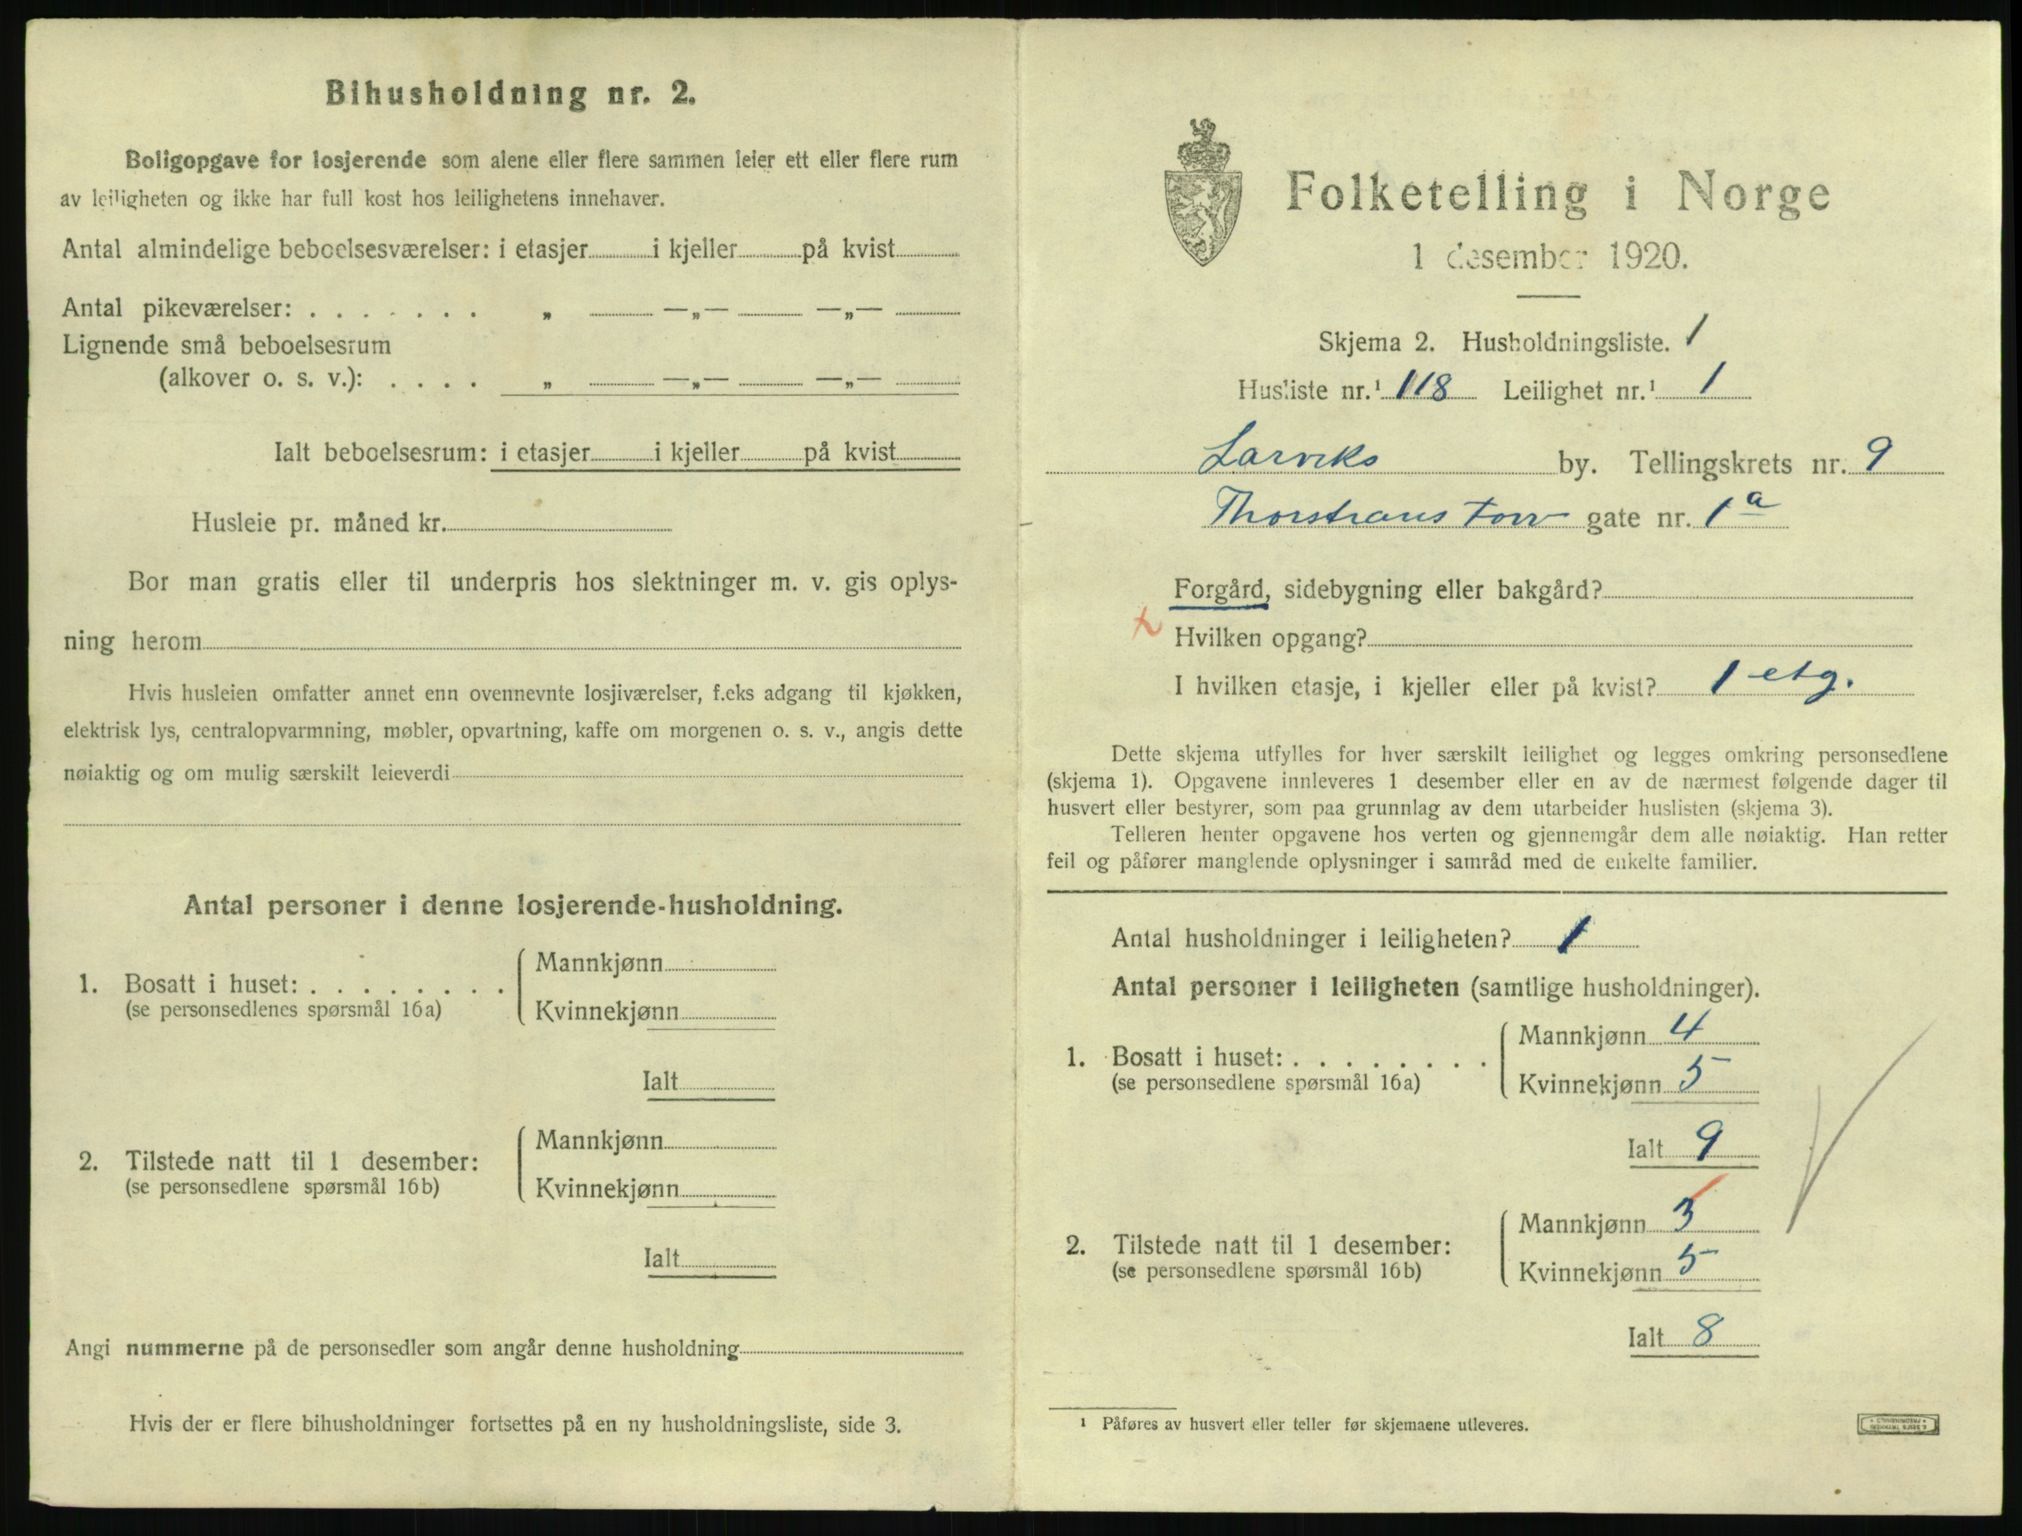 Bihusholdning nr. 2.
Boligopgave for losjerende som alene eller flere sammen leier ett eller flere rum
av leiligheten og ikke har full kost hos leilighetens innehaver.
Antal almindelige beboelsesværelser: i etasjer i kjeller på kvist
Antal pikeværelser: . . . . . . . „ —„— —„—
Lignende små beboelsesrum
(alkover o. s. v.): . . . . „ —„— —„—
Ialt beboelsesrum: i etasjer i kjeller på kvist
Husleie pr. måned kr.
Bor man gratis eller til underpris hos slektninger m. v. gis oplys-
ning herom
Hvis husleien omfatter annet enn ovennevnte losjiværelser, f.eks adgang til kjøkken,
elektrisk lys, centralopvarmning, møbler, opvartning, kaffe om morgenen o. s. v., angis dette
nøiaktig og om mulig særskilt leieverdi
Antal personer i denne losjerende-husholdning.
1. Bosatt i huset: . . . . . . . .
(se personsedlenes spørsmål 16a)
Mannkjønn
Kvinnekjønn
Ialt
2. Tilstede natt til 1 desember:
(se personsedlene spørsmål 16b)
Mannkjønn
Kvinnekjønn
Ialt
Angi nummerne på de personsedler som angår denne husholdning
Hvis der er flere bihusholdninger fortsettes på en ny husholdningsliste, side 3.
Folketelling i Norge
1 desember 1920.
Skjema 2. Husholdningsliste. 1
Husliste nr.¹ 118 Leilighet nr.¹ 1
Larviks by. Tellingskrets nr. 9
Thorstrans torv gate nr. 1a
Forgård, sidebygning eller bakgård?
Hvilken opgang?
I hvilken etasje, i kjeller eller på kvist? 1 etg.
Dette skjema utfylles for hver særskilt leilighet og legges omkring personsedlene
(skjema 1). Opgavene innleveres 1 desember eller en av de nærmest følgende dager til
husvert eller bestyrer, som paa grunnlag av dem utarbeider huslisten (skjema 3).
Telleren henter opgavene hos verten og gjennemgår dem alle nøiaktig. Han retter
feil og påfører manglende oplysninger i samråd med de enkelte familier.
Antal husholdninger i leiligheten? 1
Antal personer i leiligheten (samtlige husholdninger).
1. Bosatt i huset: . . . . . . . .
(se personsedlene spørsmål 16a)
Mannkjønn 4
Kvinnekjønn 5
Ialt 9
2. Tilstede natt til 1 desember:
(se personsedlene spørsmål 16b)
Mannkjønn 3
Kvinnekjønn 5
Ialt 8
¹ Påføres av husvert eller teller før skjemaene utleveres.